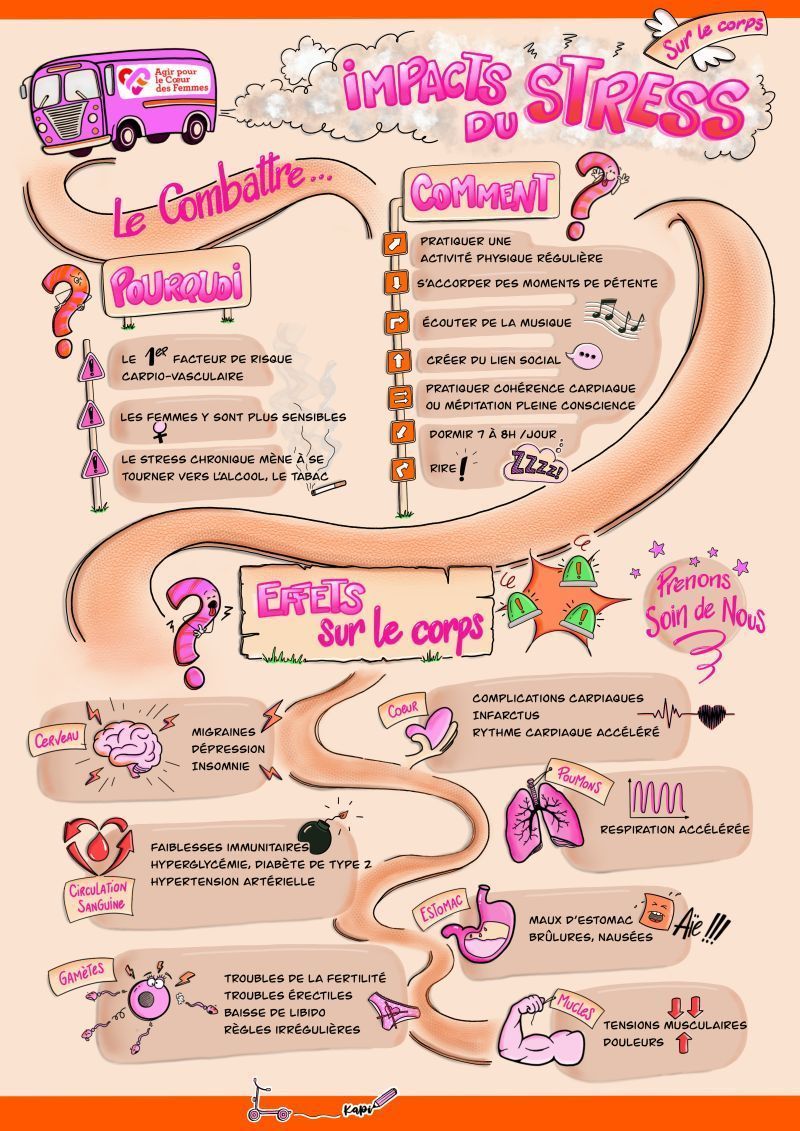 Agir pour
le Cœur
des Femmes
IMPACTS
DU
STRESS
Sur le corps
Le Combattre...
POURQUOI
LE 1er FACTEUR DE RISQUE
CARDIO-VASCULAIRE
LES FEMMES Y SONT PLUS SENSIBLES
LE STRESS CHRONIQUE MÈNE À SE
TOURNER VERS L'ALCOOL, LE TABAC
COMMENT
?
PRATIQUER UNE
ACTIVITÉ PHYSIQUE RÉGULIÈRE
S'ACCORDER DES MOMENTS DE DÉTENTE
ÉCOUTER DE LA MUSIQUE
CRÉER DU LIEN SOCIAL
PRATIQUER COHÉRENCE CARDIAQUE
OU MÉDITATION PLEINE CONSCIENCE
DORMIR 7 À 8H /JOUR
RIRE!
ZZZZ!
EFFETS
sur le corps
Prenons
Soin de Nous
CERVEAU
MIGRAINES
DÉPRESSION
INSOMNIE
COEUR
COMPLICATIONS CARDIAQUES
INFARCTUS
RYTHME CARDIAQUE ACCÉLÉRÉ
POUMONS
RESPIRATION ACCÉLÉRÉE
CIRCULATION
SANGUINE
FAIBLESSES IMMUNITAIRES
HYPERGLYCÉMIE, DIABÈTE DE TYPE 2
HYPERTENSION ARTÉRIELLE
ESTOMAC
MAUX D'ESTOMAC
BRÛLURES, NAUSÉES
Aïe !!!
GAMÈTES
TROUBLES DE LA FERTILITÉ
TROUBLES ÉRECTILES
BAISSE DE LIBIDO
RÈGLES IRRÉGULIÈRES
MUCLES
TENSIONS MUSCULAIRES
DOULEURS
Kapi